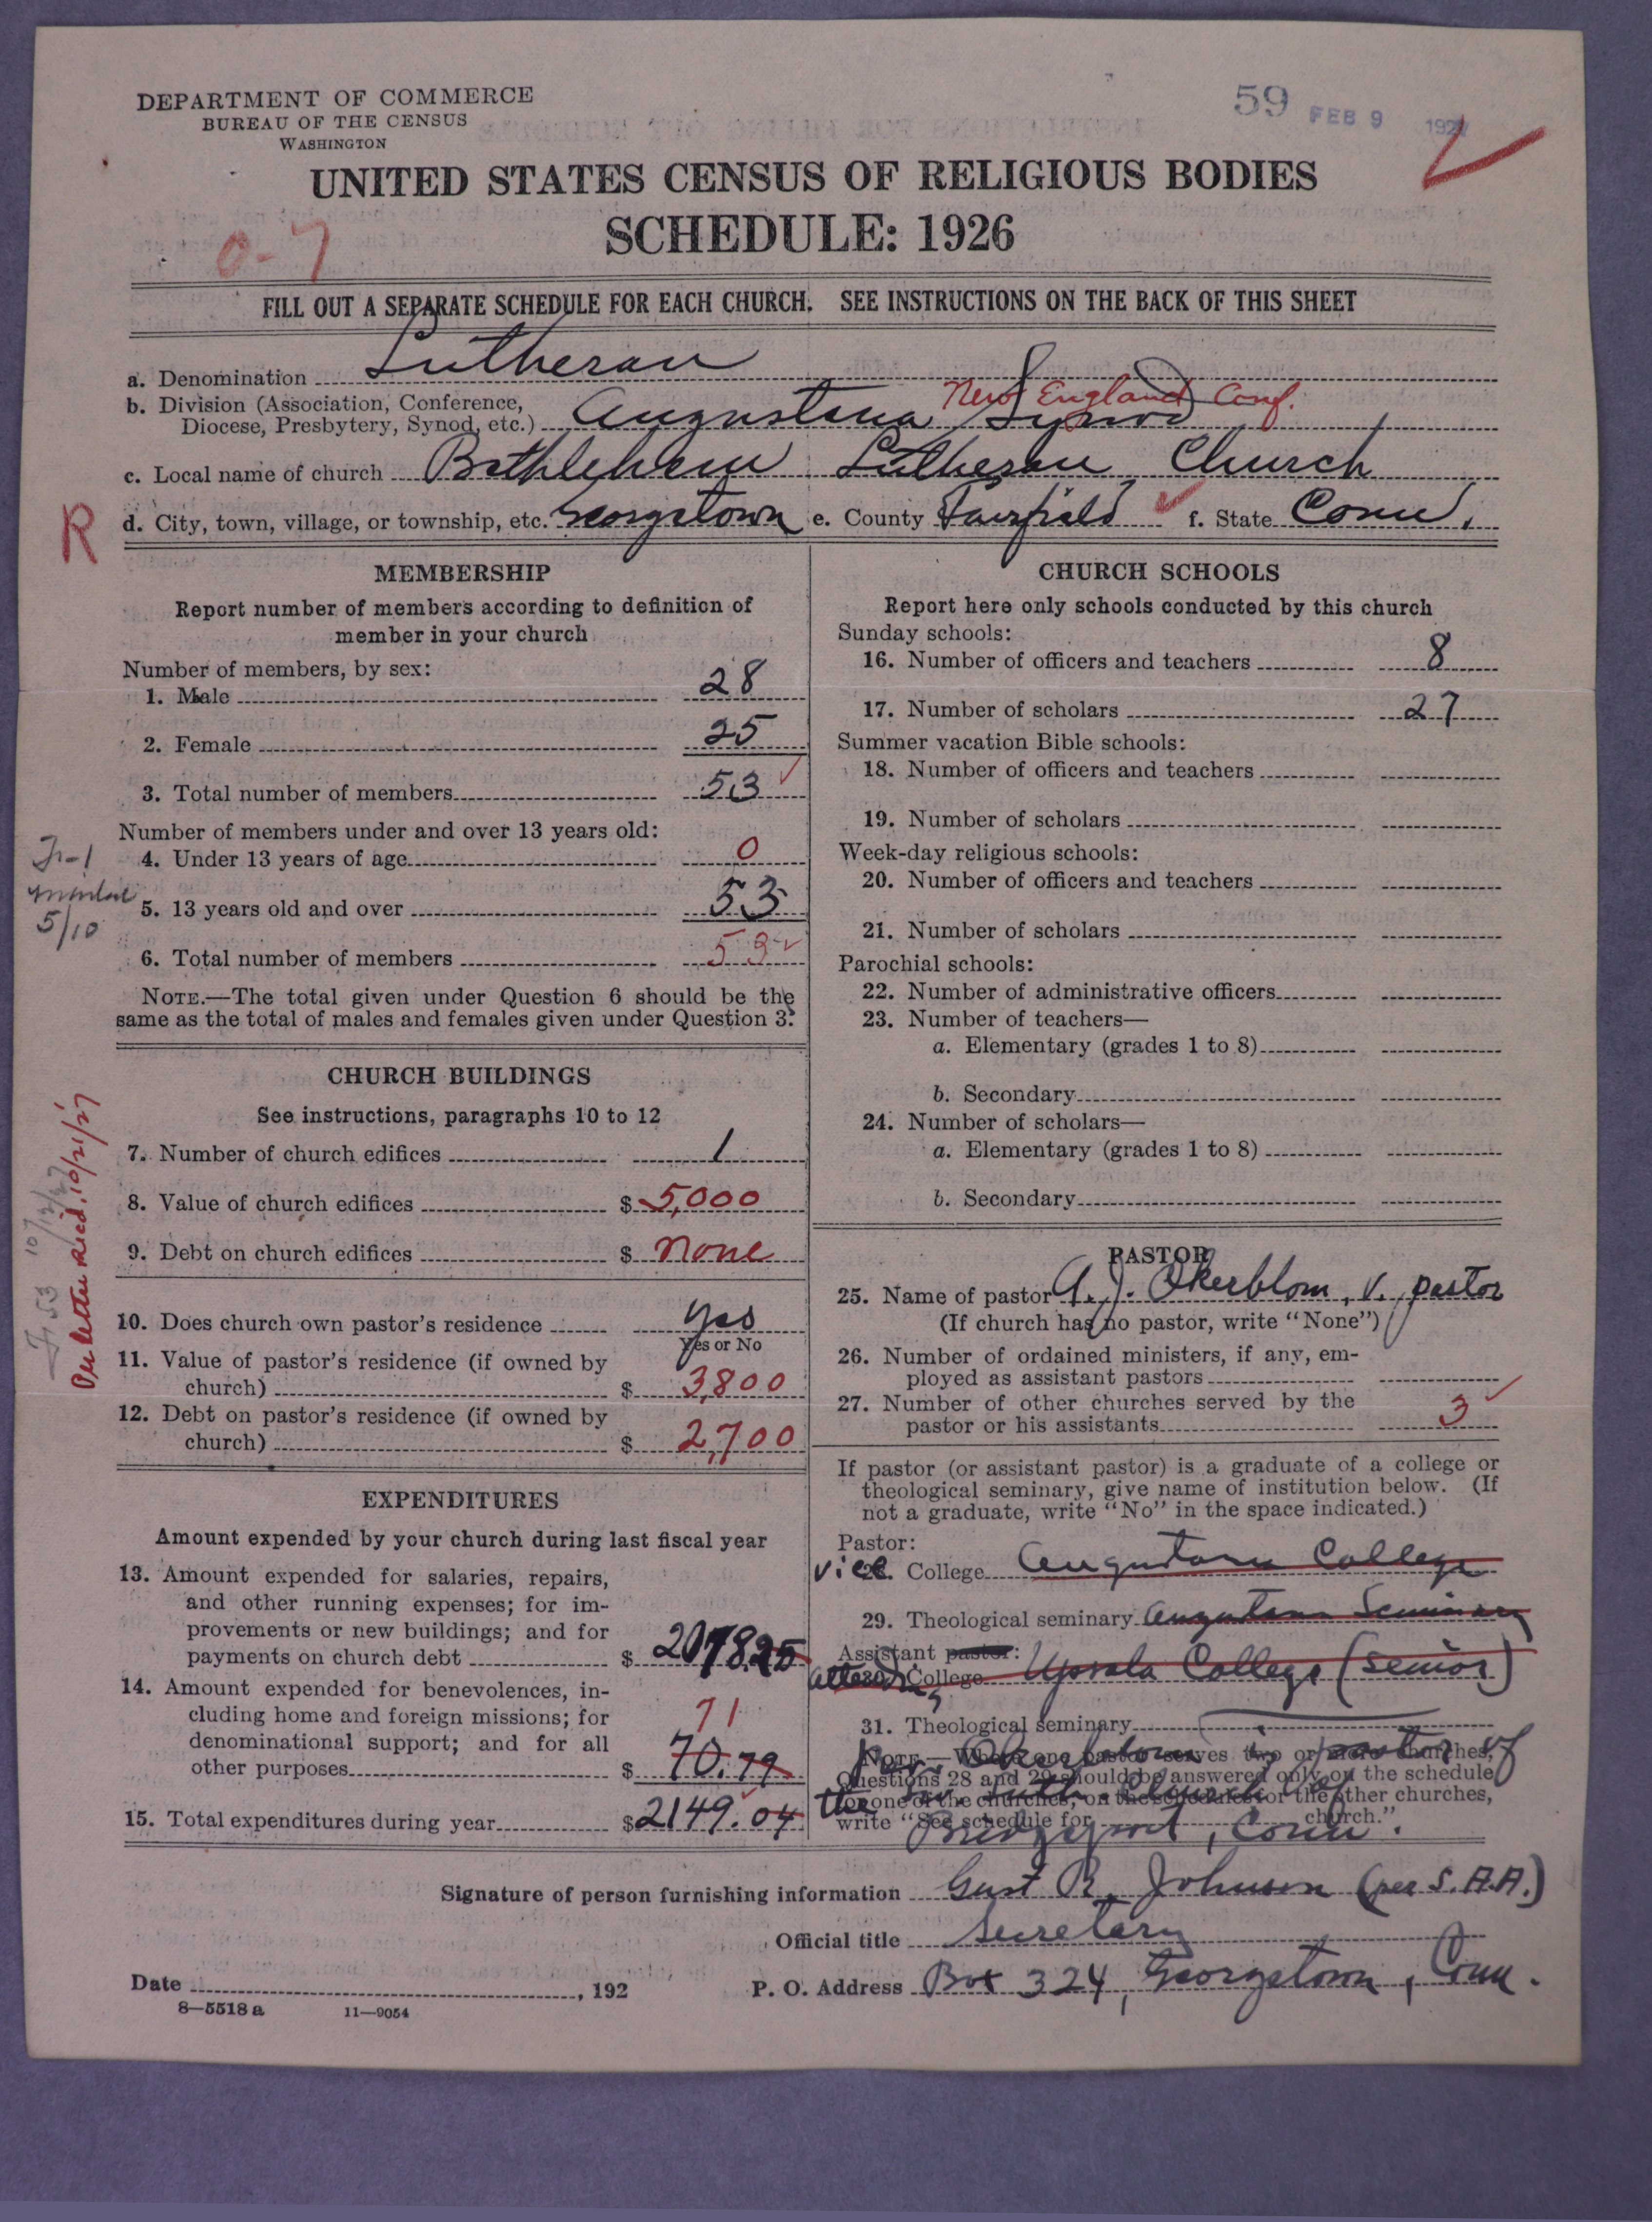 DEPARTMENT OF COMMERCE
BUREAU OF THE CENSUS
WASHINGTON
59 FEB 9 1927
UNITED STATES CENSUS OF RELIGIOUS BODIES
SCHEDULE: 1926
0-7
FILL OUT A SEPARATE SCHEDULE FOR EACH CHURCH. SEE INSTRUCTIONS ON THE BACK OF THIS SHEET
a. Denomination Lutheran
b. Division (Association, Conference,
Diocese, Presbytery, Synod, etc.) Augustana Synod New England Conf.
c. Local name of church Bethlehem Lutheran Church
R
d. City, town, village, or township, etc. Georgetown e. County Fairfield f. State Conn.
MEMBERSHIP
Report number of members according to definition of
member in your church
Number of members, by sex:
1. Male 28
2. Female 25
3. Total number of members 53
Number of members under and over 13 years old:
4. Under 13 years of age 0
5. 13 years old and over 53
6. Total number of members 53
5/10
NOTE.—The total given under Question 6 should be the
same as the total of males and females given under Question 3.
CHURCH BUILDINGS
See instructions, paragraphs 10 to 12
7. Number of church edifices 1
8. Value of church edifices $ 5,000
9. Debt on church edifices $ None
10. Does church own pastor's residence yes
Yes or No
11. Value of pastor's residence (if owned by
church) $ 3,800
12. Debt on pastor's residence (if owned by
church) $ 2,700
Per letter Recd. 10/21/27
EXPENDITURES
Amount expended by your church during last fiscal year
13. Amount expended for salaries, repairs,
and other running expenses; for im-
provements or new buildings; and for
payments on church debt $ 2078.25
14. Amount expended for benevolences, in-
cluding home and foreign missions; for
denominational support; and for all
other purposes $ 70.79
71
15. Total expenditures during year $ 2149.04
CHURCH SCHOOLS
Report here only schools conducted by this church
Sunday schools:
16. Number of officers and teachers 8
17. Number of scholars 27
Summer vacation Bible schools:
18. Number of officers and teachers
19. Number of scholars
Week-day religious schools:
20. Number of officers and teachers
21. Number of scholars
Parochial schools:
22. Number of administrative officers
23. Number of teachers—
a. Elementary (grades 1 to 8)
b. Secondary
24. Number of scholars—
a. Elementary (grades 1 to 8)
b. Secondary
PASTOR
25. Name of pastor A. J. Okerblom, v. pastor
(If church has no pastor, write "None")
26. Number of ordained ministers, if any, em-
ployed as assistant pastors
27. Number of other churches served by the
pastor or his assistants 3
If pastor (or assistant pastor) is a graduate of a college or
theological seminary, give name of institution below. (If
not a graduate, write "No" in the space indicated.)
Pastor:
vice 28. College Augustana College
29. Theological seminary Augustana Seminary
Assistant pastor:
30. College Upsala College (Senior)
31. Theological seminary
NOTE.—Where one pastor serves two or more churches,
Questions 28 and 29 should be answered only on the schedule
for one of the churches; on the schedules for the other churches,
write "See schedule for church."
Okerblom is pastor of
the
Bridgeport, Conn.
Signature of person furnishing information Gust R. Johnson (per S.A.A.)
Official title Secretary
Date , 192
P. O. Address Box 324, Georgetown, Conn.
8—5518 a 11—9054